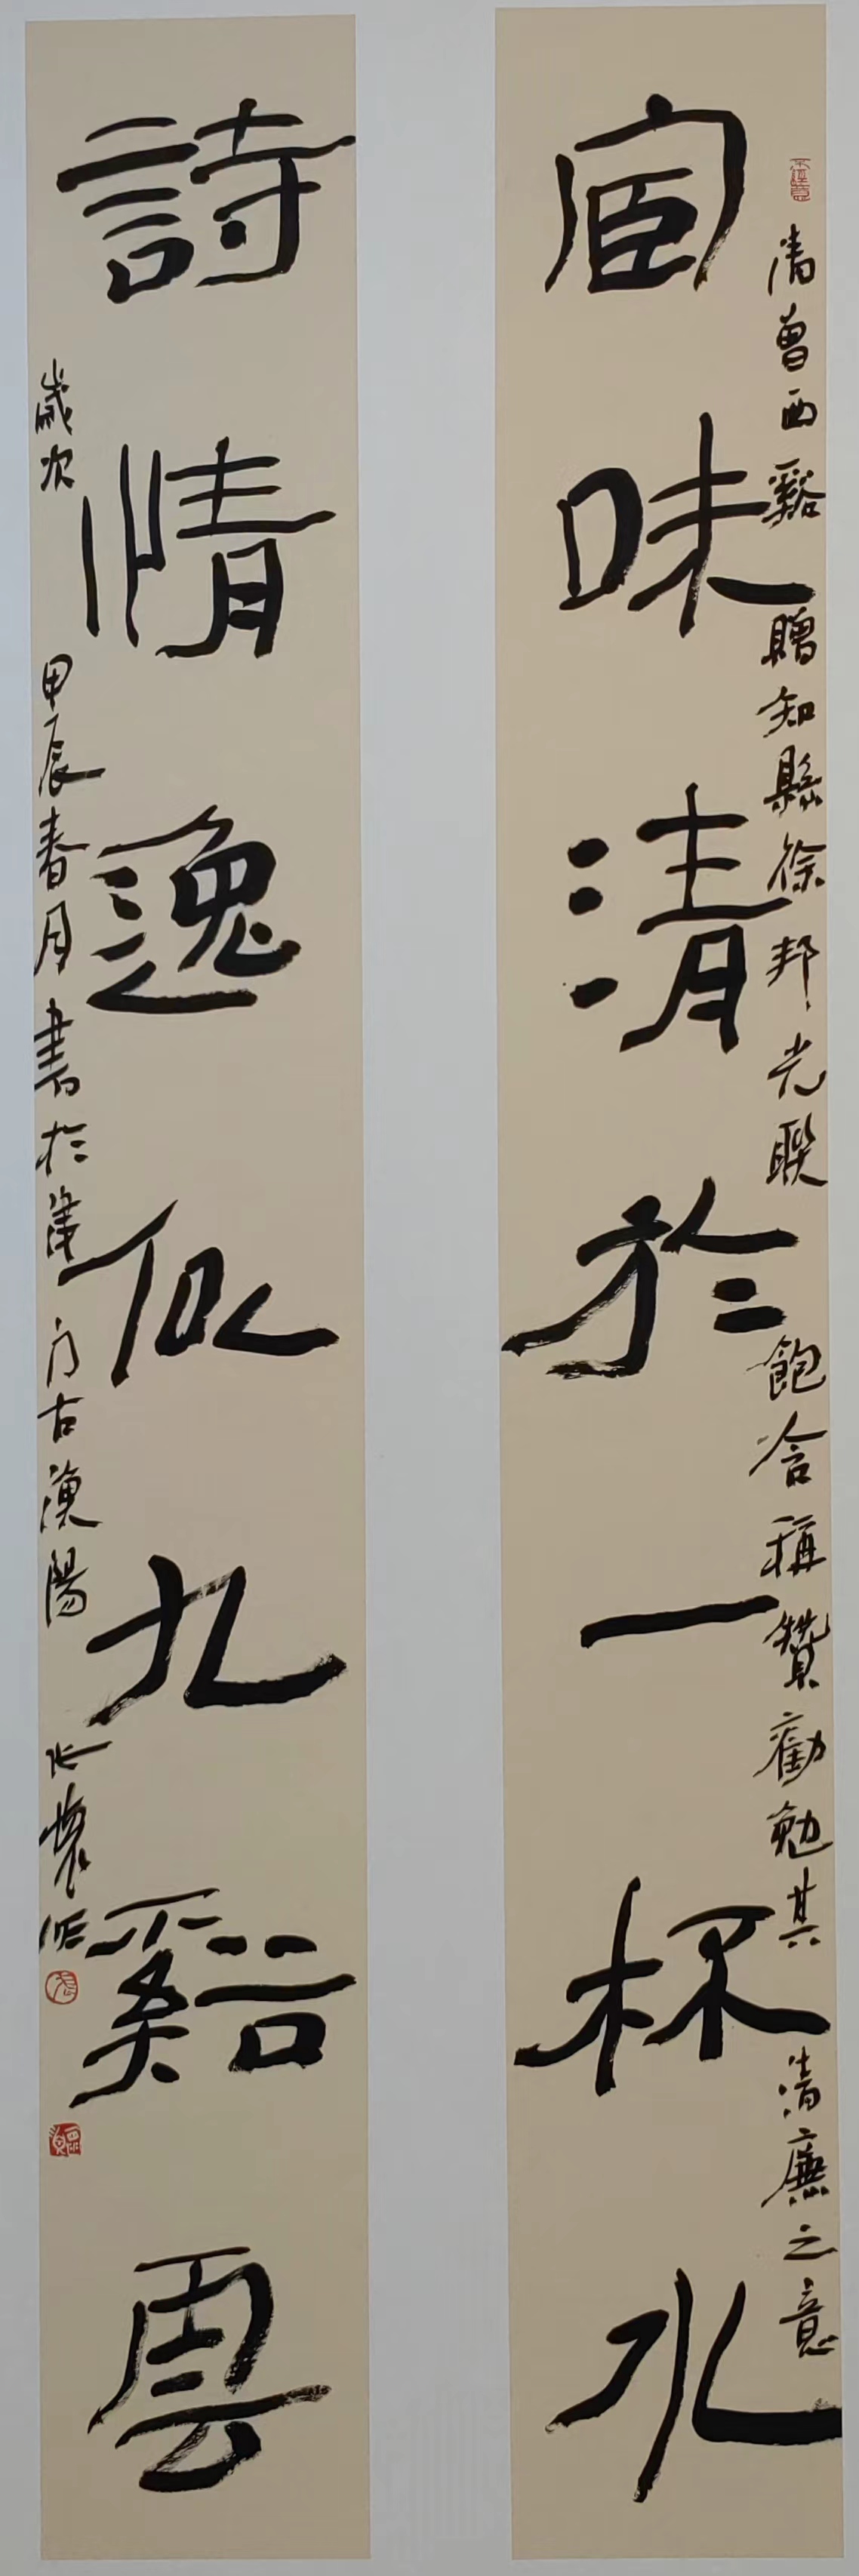 宦味清於一杯水
清曾西谿贈知縣徐邦光聯飽含稱贊勸勉其清廉之意
詩情逸似九谿雲
歲次甲辰春月書於古漁陽